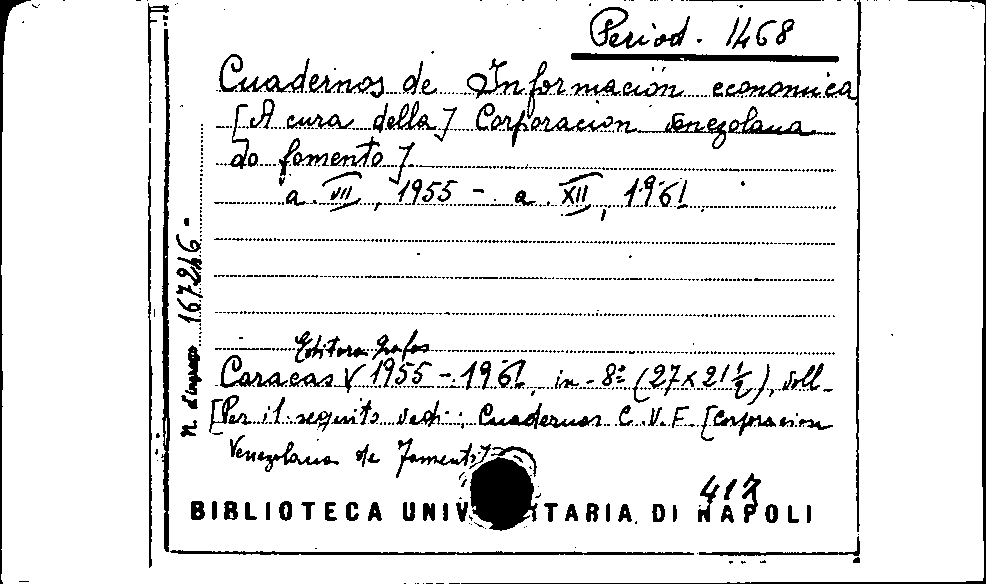 Period. 1468
Cuadernos de Información economica
[A cura della] Corporación Venezolana
do fomento].
a. VII, 1955 - a. XII, 1961
N. d'ingresso 167246 -
Editora Grafos
Caracas V 1955 - 1961, in - 8º (27 x 21 ½), voll.
[Per il seguito vedi: Cuadernos C.V.F. [Corporacion
Venezolana de Fomento]
BIBLIOTECA UNIV ITARIA DI NAPOLI